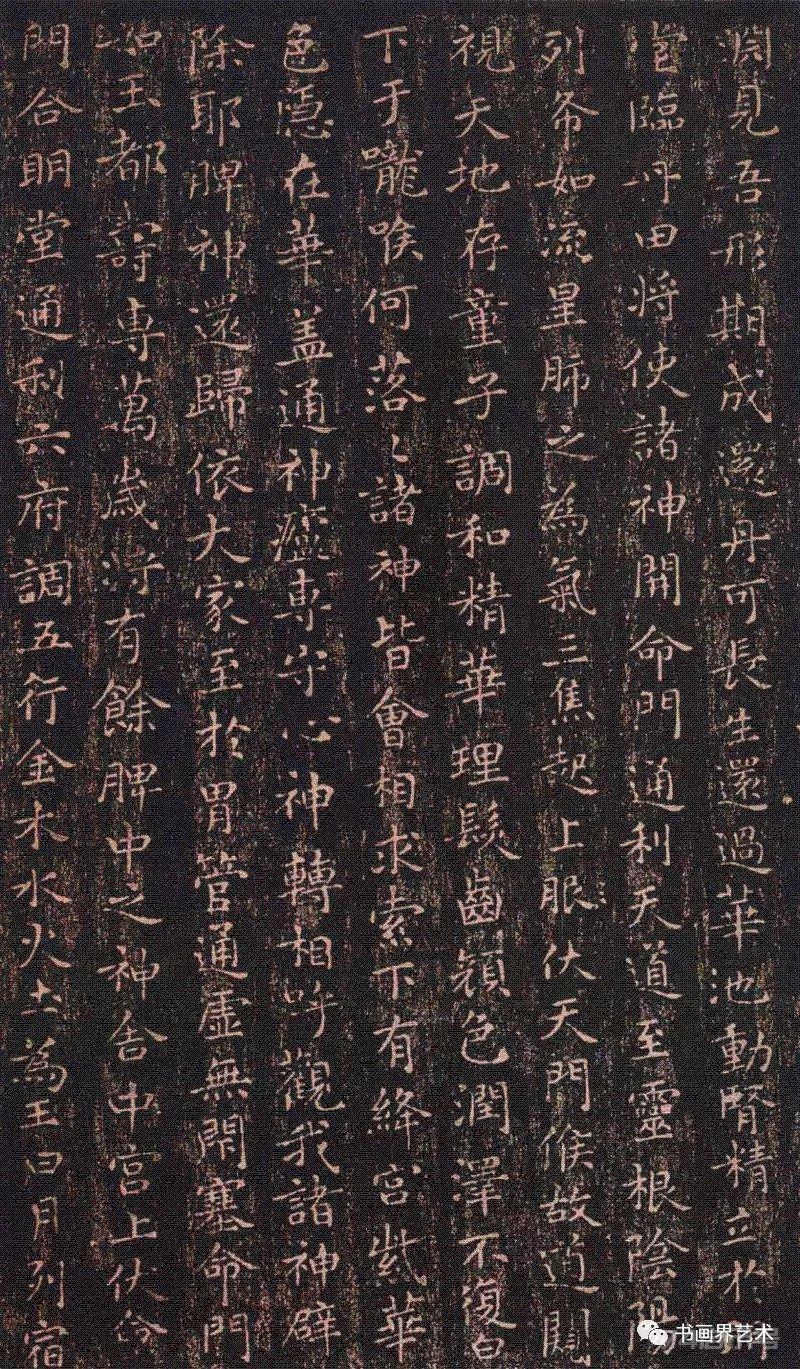 淵見吾形期成還丹可長生還過華池動腎精立於
堂臨丹田將使諸神開命門通利天道至靈根陰陽
列布如流星肺之為氣三焦起上眼伏天門候故道闚
視天地存童子調和精華理髮齒顏色潤澤不復白
下于嚨喉何落〻諸神皆會相求索下有絳宮紫華
色隱在華蓋通神廬專守心神轉相呼觀我諸神辟
除耶脾神還歸依大家至於胃管通虛無閉塞命門
如玉都壽專萬歲將有餘脾中之神舍中宮上伏命
門合明堂通利六府調五行金木水火土為王日月列宿
书画界艺术